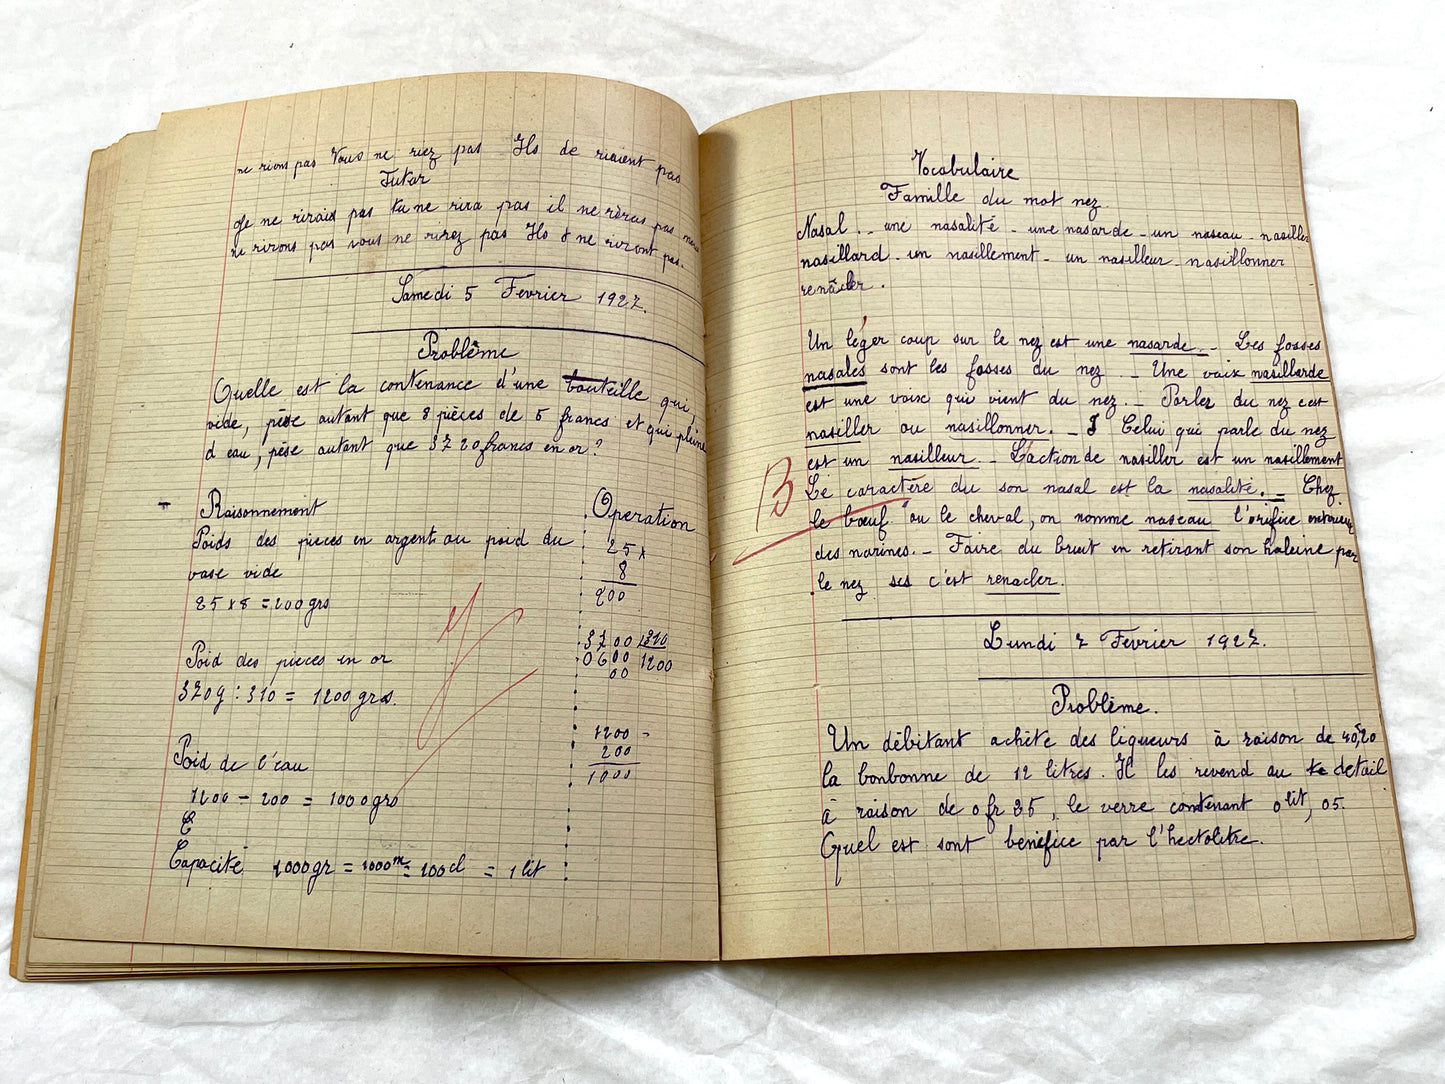 ne rions pas Vous ne riez pas Ils de riaient pas
Futur
Je ne rirais pas tu ne rira pas il ne riras pas nous
ne rirons pas vous ne rirez pas Ils ne riront pas.
Samedi 5 Fevrier 1927.
Problème
Quelle est la contenance d'une bouteille qui,
vide, pèse autant que 8 pièces de 5 francs et qui pleine
d eau, pèse autant que 3720 francs en or?
Raisonnement
Poids des pieces en argent ou poid du
vase vide
25 x 8 = 200 grs
Poid des pieces en or
3720 : 310 = 1200 grs.
Poid de l'eau
1200 - 200 = 1000 grs
C
Capacité 1000 gr = 1000 m = 100 cl = 1 lit
Operation
25 x
8
200
3700 310
0600 1200
00
1200 -
200
1000
Vocabulaire
Famille du mot nez.
Nasal. - une nasalité - une nasarde - un naseau - nasiller
nasillard - un nasillement - un nasilleur - nasillonner
renâcler.
Un léger coup sur le nez est une nasarde. - Les fosses
nasales sont les fosses du nez. - Une voix nasillarde
est une voix qui vient du nez. - Parler du nez c'est
nasiller ou nasillonner. - Celui qui parle du nez
est un nasilleur. - L'action de nasiller est un nasillement
B
Le caractère du son nasal est la nasalité. - Chez
le bœuf ou le cheval, on nomme naseau l'orifice extérieur
des narines. - Faire du bruit en retirant son haleine par
le nez c'est renacler.
Lundi 7 Fevrier 1927.
Problème.
Un débitant achète des liqueurs à raison de 40f,20
la bonbonne de 12 litres. Il les revend au detail
à raison de 0 fr 25, le verre contenant 0 lit, 05.
Quel est sont benefice par l'hectolitre.